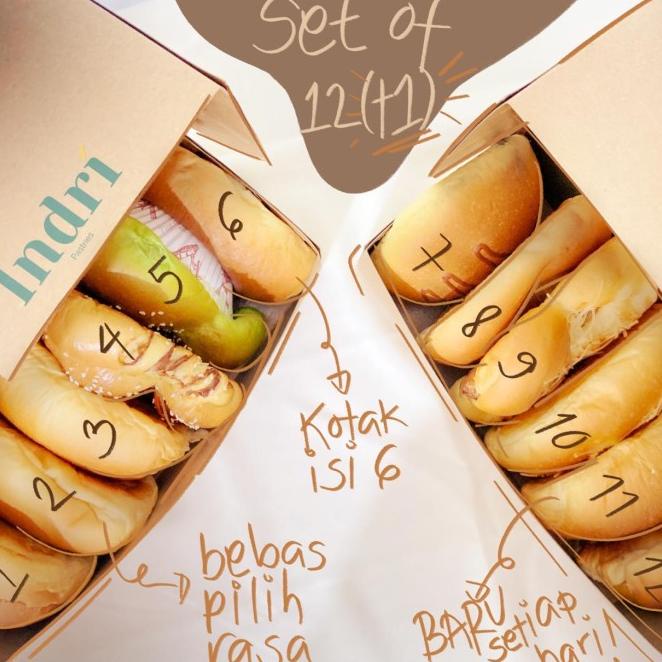 set of
12(+1)
Indri
Pastries
6
5
4
3
2
1
7
8
9
10
11
12
Kotak
isi 6
bebas
pilih
rasa
BARU
setiap
hari!